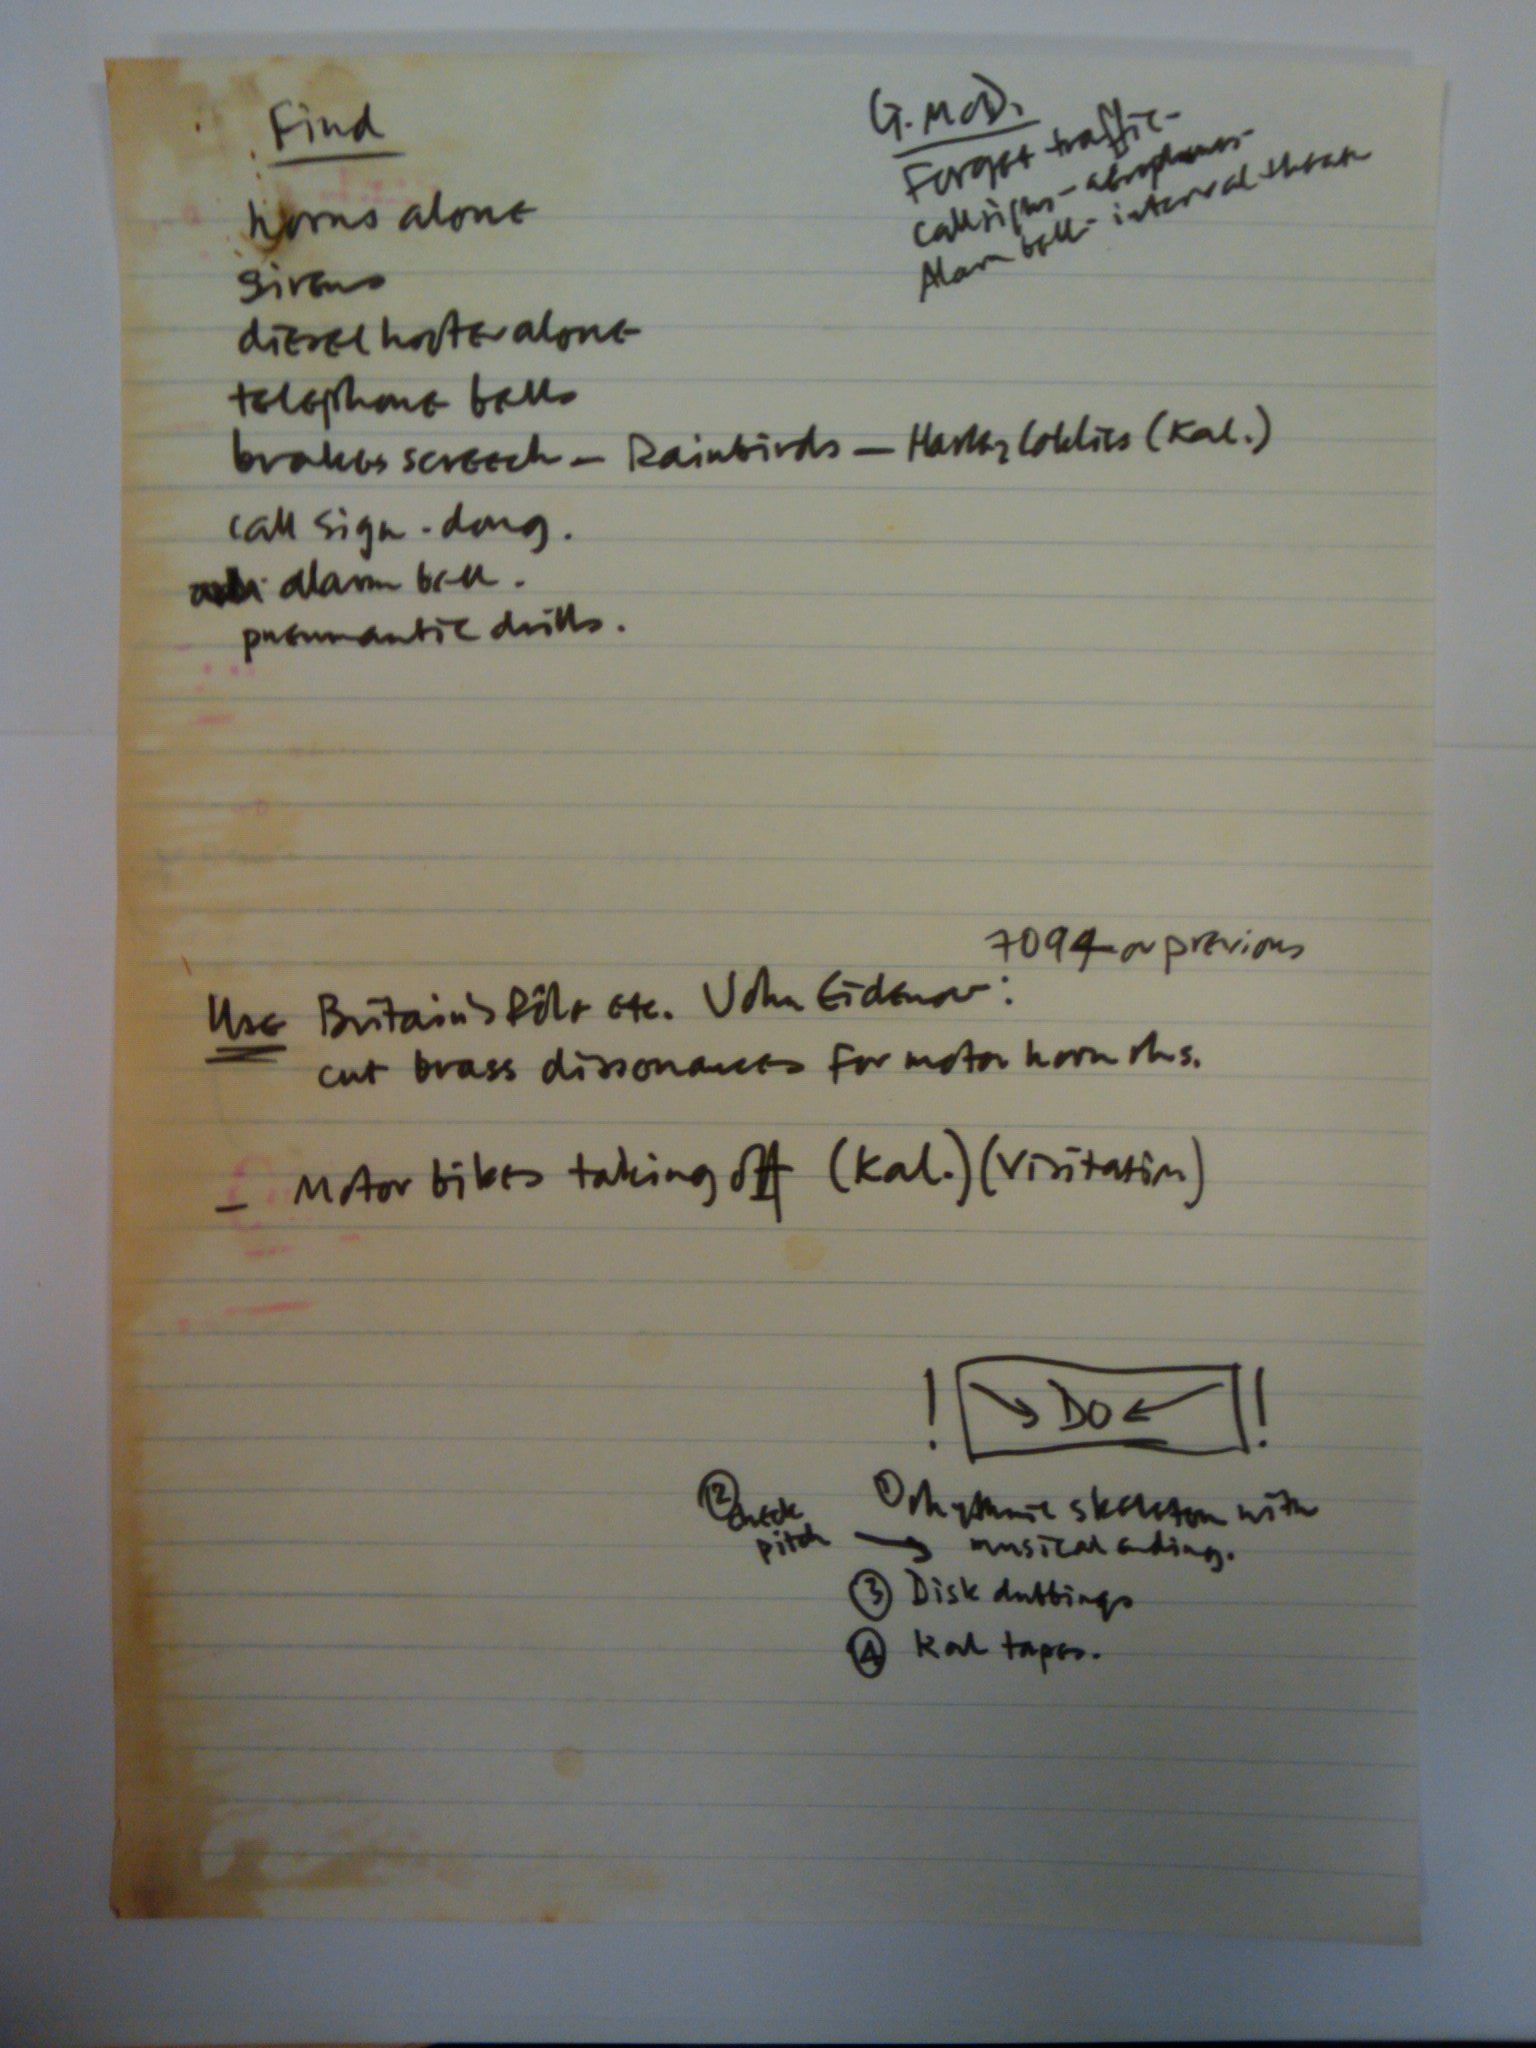 Find
horns alone
sirens
diesel hooter alone
telephone bells
brakes screech – Rainbirds – (Kal.)
call sign - dong.
alarm bell.
pneumantic drills.
G.
Forget traffic -
call signs - aeroplanes -
Alarm bell - interval theatre
7094 or previous
Use Britain's Rôle etc. John :
cut brass dissonances for motor horn
– Motor bikes taking off (Kal.) (Visitation)
! → DO ← !
① rhythmic skeleton with
musical ending.
② check
pitch →
③ Disk dubbings
④ Kal tapes.